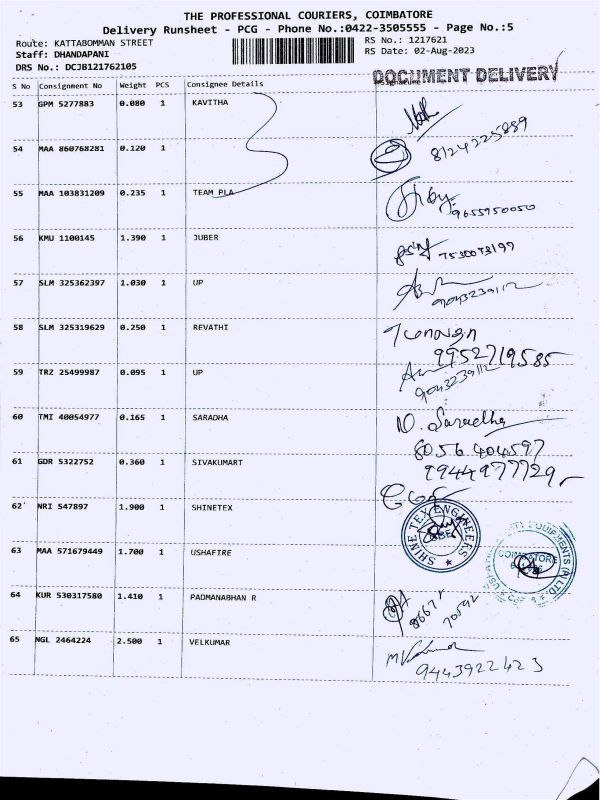 THE PROFESSIONAL COURIERS, COIMBATORE
Delivery Runsheet - PCG - Phone No.:0422-3505555 - Page No.:5
Route: KATTABOMMAN STREET RS No.: 1217621
Staff: DHANDAPANI RS Date: 02-Aug-2023
DRS No.: DCJB121762105
DOCUMENT DELIVERY
S No Consignment No Weight PCS Consignee Details
53 GPM 5277883 0.080 1 KAVITHA
54 MAA 860768281 0.120 1
8124225889
55 MAA 103831209 0.235 1 TEAM PLA
9655950050
56 KMU 1100145 1.390 1 JUBER
7530073199
57 SLM 325362397 1.030 1 UP
9043239112
58 SLM 325319629 0.250 1 REVATHI
9952719585
59 TRZ 25499987 0.095 1 UP
9043239112
60 TMI 40054977 0.165 1 SARADHA
N. Saradha
8056404597
61 GDR 5322752 0.360 1 SIVAKUMART
9944977729
62 NRI 547897 1.900 1 SHINETEX
SHINE TEX ENGINEERS
63 MAA 571679449 1.700 1 USHAFIRE
COIMBATORE
64 KUR 530317580 1.410 1 PADMANABHAN R
8667 70592
65 NGL 2464224 2.500 1 VELKUMAR
9443922423